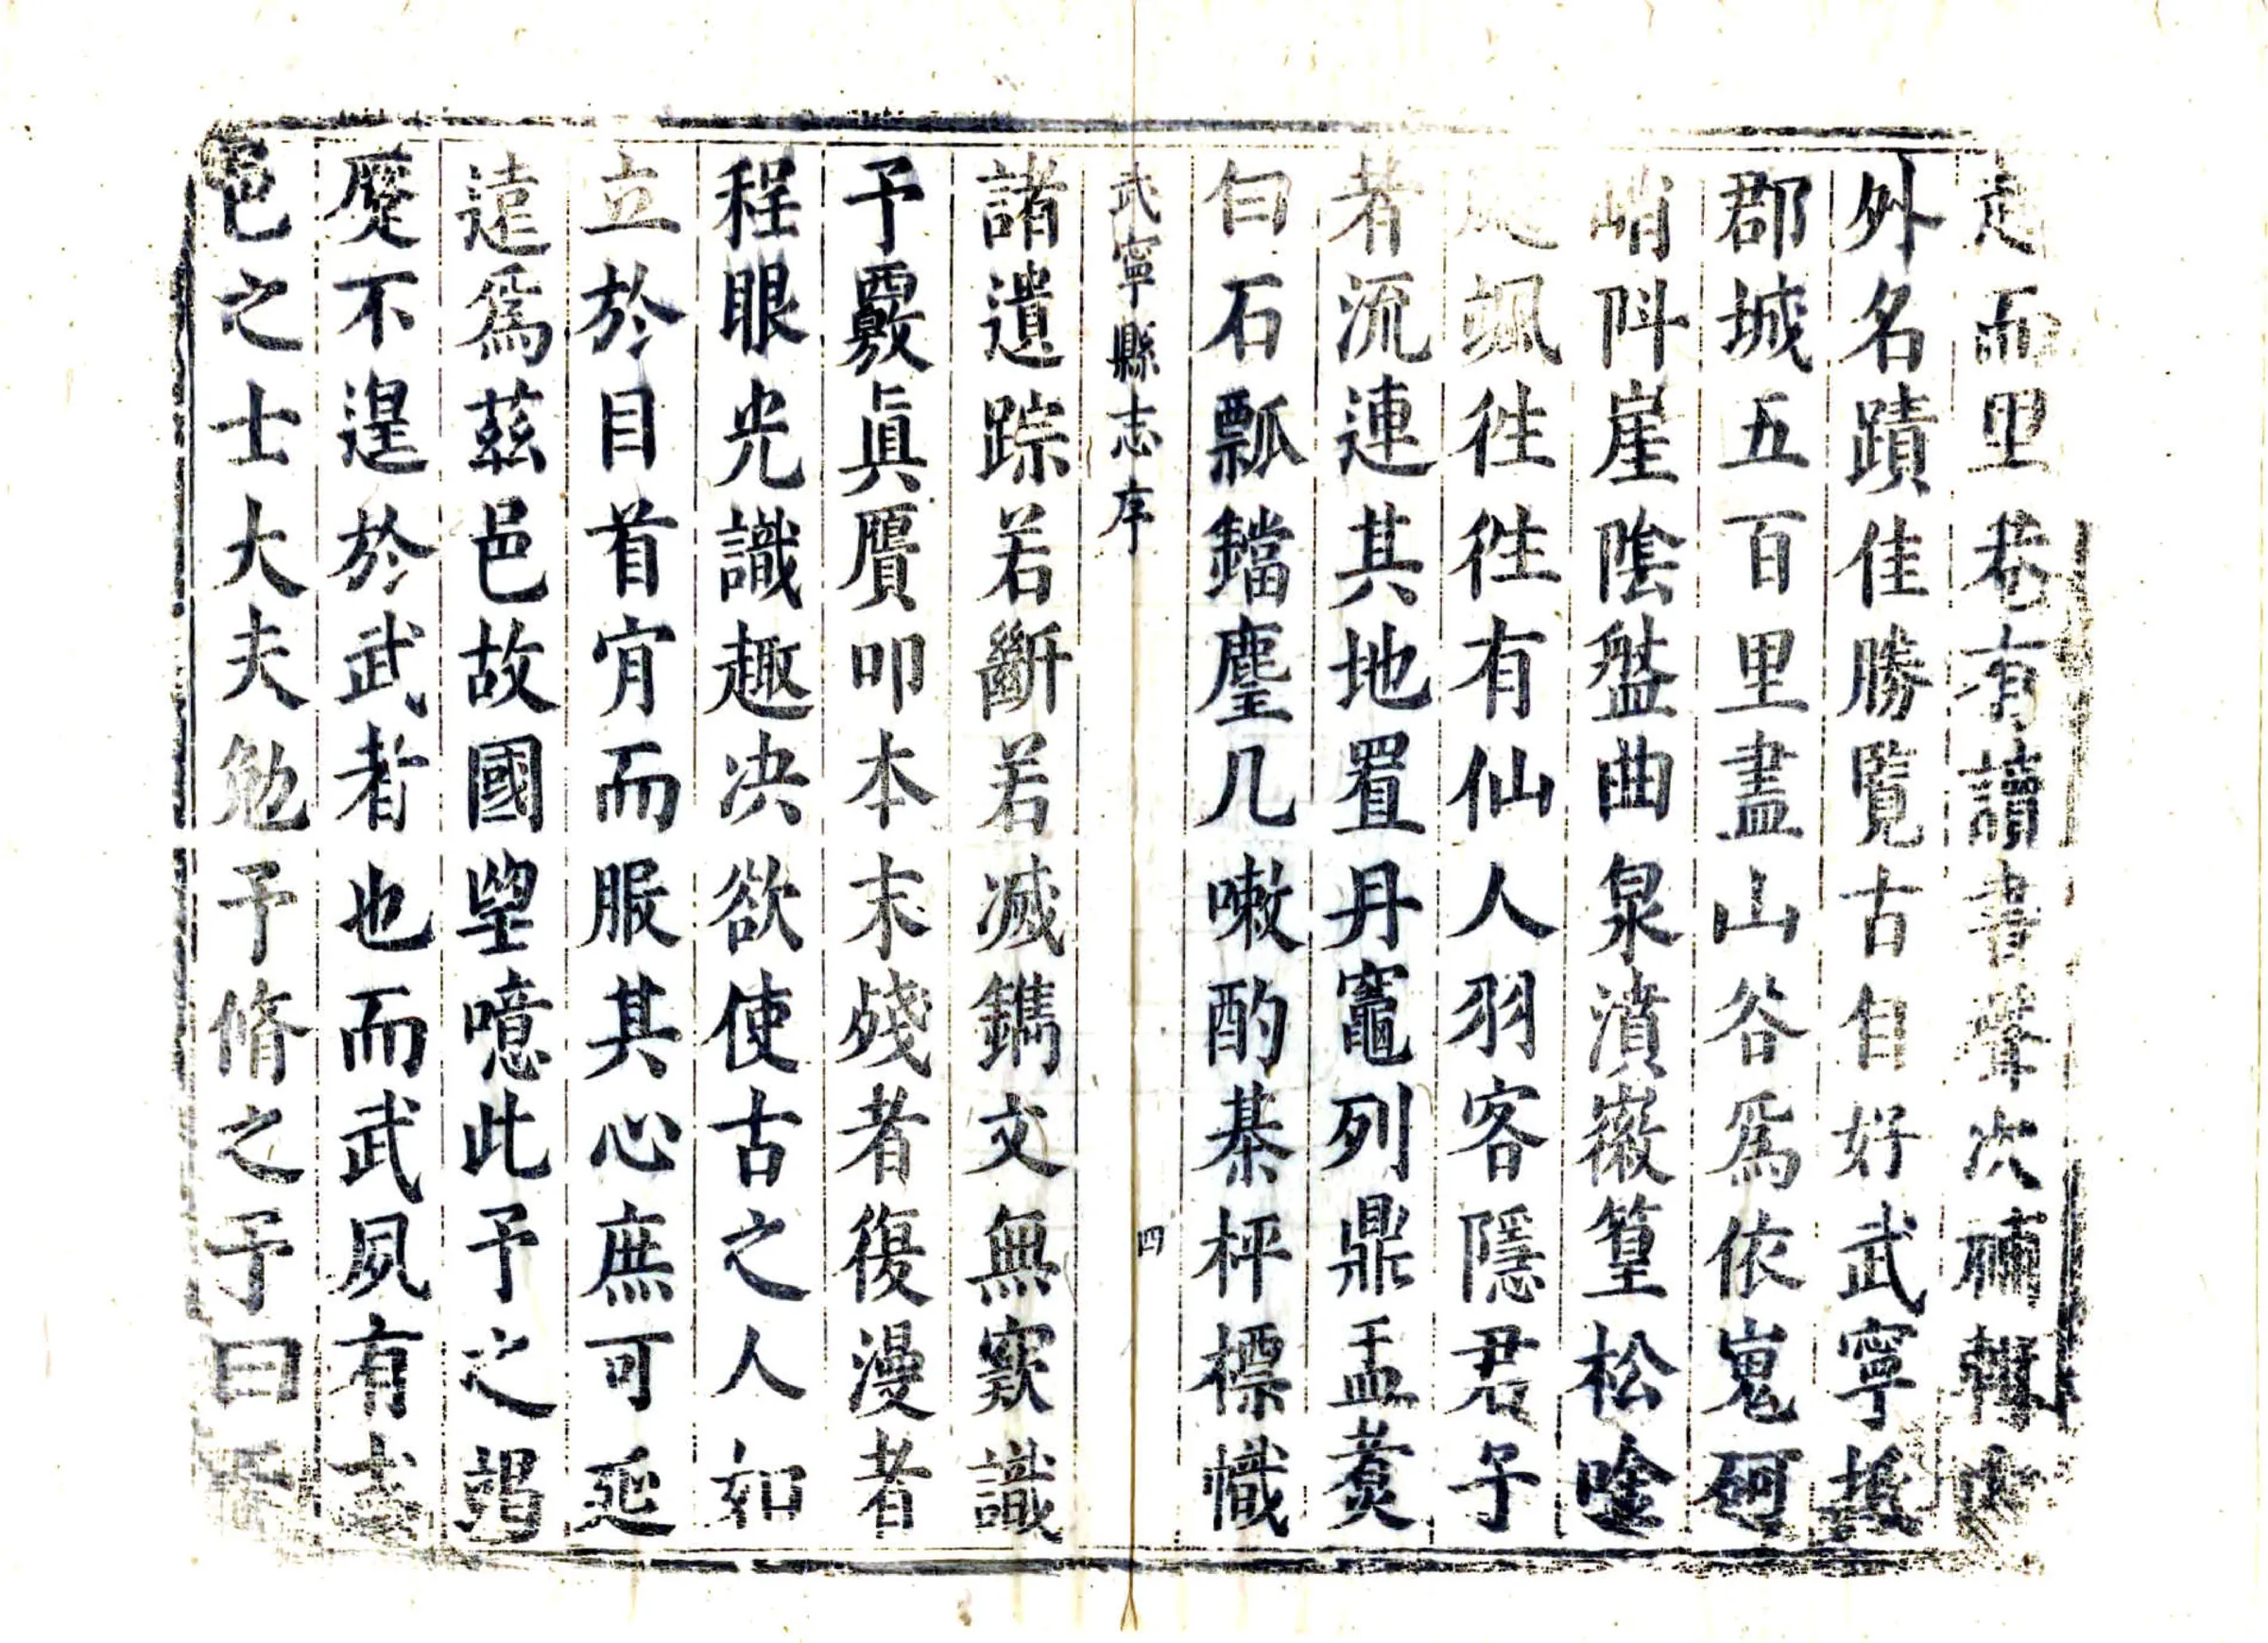 走而里巷有讀書聲次補輯
外名蹟佳勝覽古自好武寧
郡城五百里盡山谷爲依嵬
峭阧崖陰盤曲泉濆嶶篁松唫
颯徃徃有仙人羽客隱君子
者流連其地罝丹竈列鼎盂煑
臼石瓢鐺麈几嗽酌棊枰標幟
武寧縣志序
四
諸遺踪若斷若滅鐫文無窾識
予覈眞贋叩本末殘者復漫者
程眼光識趣决欲使古之人如
立於目首肎而服其心庶可延
逺爲茲邑故國朢噫此予之
蹷不遑於武者也而武夙有志
邑之士大夫勉予脩之予曰